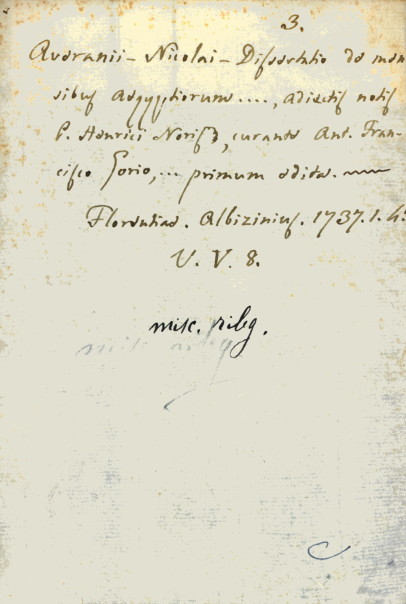 3.
Averanii - Nicolai - Dissertatio de men
sibus Aegyptiorum...., adiectis notis
P. Henrici Norisii, curante Ant. Fran-
cisco Gorio,... primum edita.
Florentiae. Albiziniis. 1737. 1. 4:
V. V. 8.
misc. rileg.
misc rileg